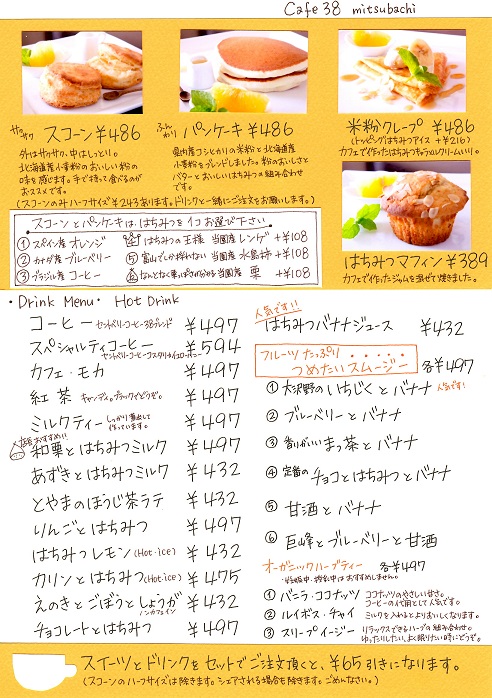 Cafe 38 mitsubachi
サクサク スコーン ¥486
外はサクサク、中はしっとり。
北海道産小麦粉のおいしい粉の
味を感じます。手で持って食べるのが
おススメです。
(スコーンのみハーフサイズ¥243あります。ドリンクと一緒にご注文をお願いします。)
ふんわり パンケーキ ¥486
県内産コシヒカリの米粉と北海道産
小麦粉をブレンドしました。粉のおいしさと
バターとおいしいはちみつの組み合わせ
です。
米粉クレープ ¥486
(トッピングはちみつアイス +¥216)
カフェで作ったはちみつキャラメルクリーム入り。
はちみつマフィン ¥389
カフェで作ったジャムを混ぜて焼きました。
スコーンとパンケーキは、はちみつを1コお選び下さい
①スペイン産 オレンジ
②カナダ産 ブルーベリー
③ブラジル産 コーヒー
はちみつの王様 当園産 レンゲ +¥108
⑤富山でしか採れない 当園産 水島柿 +¥108
当園産 栗 +¥108
・Drink Menu・ Hot Drink
コーヒー ¥497
スペシャルティコーヒー ¥594
カフェ・モカ ¥497
紅茶 ¥497
ミルクティー しっかり煮出して作っています。 ¥497
店長おすすめ!!
和栗とはちみつミルク ¥497
あずきとはちみつミルク ¥432
とやまのほうじ茶ラテ ¥432
りんごとはちみつ ¥497
はちみつレモン (Hot・ice) ¥432
カリンとはちみつ (Hot・ice) ¥475
えのきとごぼうとしょうが ノンカフェイン ¥432
チョコレートとはちみつ ¥497
人気です!!
はちみつバナナジュース ¥432
フルーツたっぷり・・・・・
つめたいスムージー 各¥497
①大沢野のいちじくとバナナ 人気です!
②ブルーベリーとバナナ
③香りがいい まっ茶とバナナ
④定番の チョコとはちみつとバナナ
⑤甘酒とバナナ
⑥巨峰とブルーベリーと甘酒
オーガニックハーブティー 各¥497
・妊娠中・授乳中はおすすめしません。
①バニラ・ココナッツ ココナッツのやさしい甘さ。
コーヒーの代用として人気です。
②ルイボス・チャイ ミルクを入れるとよりおいしくなります。
③スリープイージー リラックスできるハーブの組み合わせ
ゆったりしたい、よく眠りたい時にどうぞ。
スイーツとドリンクをセットでご注文頂くと、¥65引きになります。
(スコーンのハーフサイズは除きます。シェアされる場合を除きます。ごめんなさい。)